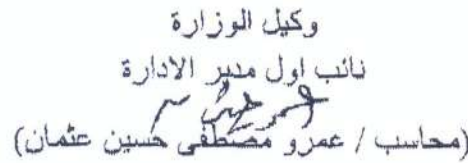 وكيل الوزارة
نائب اول مدير الادارة
(محاسب / عمرو مصطفى حسين عثمان)